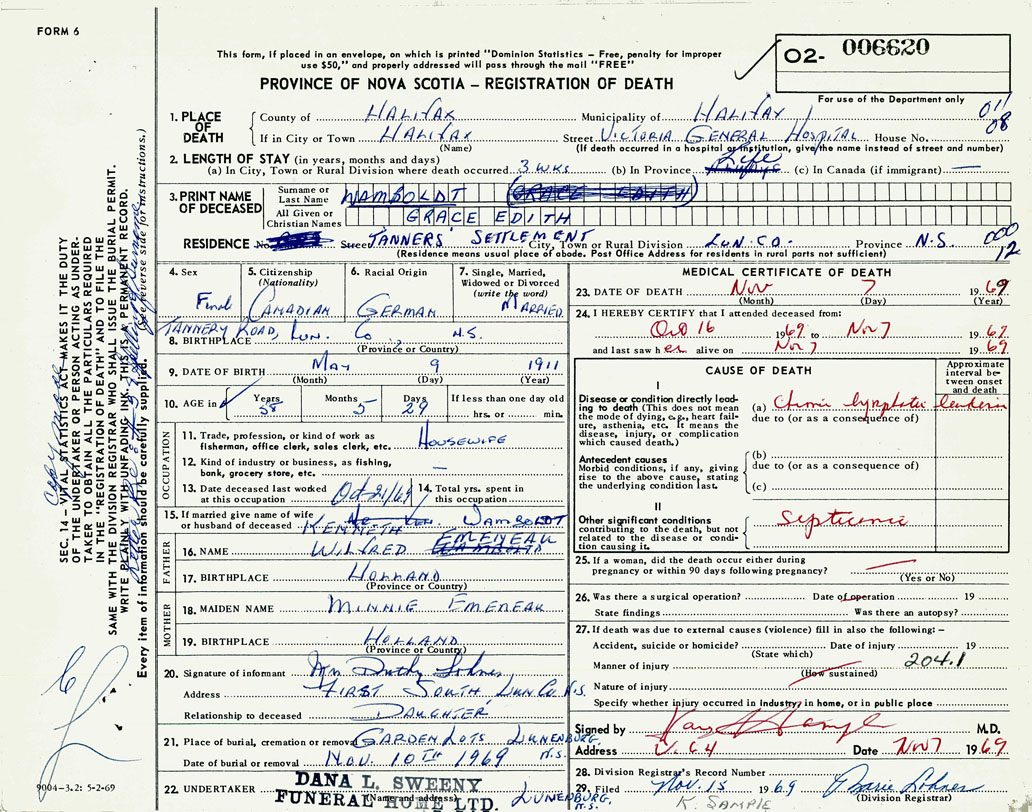 FORM 6
This form, if placed in an envelope, on which is printed "Dominion Statistics – Free, penalty for improper
use $50," and properly addressed will pass through the mail "FREE"
PROVINCE OF NOVA SCOTIA – REGISTRATION OF DEATH
02- 006620
For use of the Department only
1. PLACE OF DEATH
County of HALIFAX Municipality of HALIFAX 011
If in City or Town HALIFAX Street VICTORIA GENERAL HOSPITAL House No. 08
(Name) (If death occurred in a hospital or institution, give the name instead of street and number)
2. LENGTH OF STAY (in years, months and days) Life
(a) In City, Town or Rural Division where death occurred 3 WKS (b) In Province (c) In Canada (if immigrant) —
3. PRINT NAME OF DECEASED
Surname or Last Name WAMBOLDT GRACE EDITH
All Given or Christian Names GRACE EDITH
RESIDENCE No. Street TANNERS' SETTLEMENT City, Town or Rural Division LUN. CO. Province N.S. 000
(Residence means usual place of abode. Post Office Address for residents in rural parts not sufficient) 12
4. Sex
5. Citizenship (Nationality) CANADIAN
6. Racial Origin GERMAN
7. Single, Married, Widowed or Divorced (write the word) MARRIED
TANNERY ROAD, LUN. Co N.S.
8. BIRTHPLACE
(Province or Country)
9. DATE OF BIRTH MAY 9 1911
(Month) (Day) (Year)
10. AGE in Years 58 Months 5 Days 29 If less than one day old
hrs. or min.
OCCUPATION
11. Trade, profession, or kind of work as fisherman, office clerk, sales clerk, etc. HOUSEWIFE
12. Kind of industry or business, as fishing, bank, grocery store, etc. —
13. Date deceased last worked at this occupation Oct 21/69
14. Total yrs. spent in this occupation
15. If married give name of wife or husband of deceased KENNETH WAMBOLDT
FATHER
16. NAME WILFRED EMENEAU
17. BIRTHPLACE HOLLAND
(Province or Country)
MOTHER
18. MAIDEN NAME MINNIE EMENEAU
19. BIRTHPLACE HOLLAND
(Province or Country)
20. Signature of informant Lohnes
Address FIRST SOUTH LUN. Co. N.S.
Relationship to deceased DAUGHTER
21. Place of burial, cremation or removal GARDEN LOTS LUNENBURG, N.S.
Date of burial or removal NOV. 10TH 1969
22. UNDERTAKER DANA L. SWEENY
FUNERAL HOME LTD. LUNENBURG, N.S.
(Name and address)
MEDICAL CERTIFICATE OF DEATH
23. DATE OF DEATH Nov 7 1969
(Month) (Day) (Year)
24. I HEREBY CERTIFY that I attended deceased from:
Oct 16 1969 to Nov 7 1969
and last saw her alive on Nov 7 1969
CAUSE OF DEATH
Approximate interval between onset and death
I
Disease or condition directly leading to death (This does not mean the mode of dying, e.g., heart failure, asthenia, etc. It means the disease, injury, or complication which caused death.)
(a) Chronic lymphatic leukemia
due to (or as a consequence of)
Antecedent causes
Morbid conditions, if any, giving rise to the above cause, stating the underlying condition last.
(b)
due to (or as a consequence of)
(c)
II
Other significant conditions contributing to the death, but not related to the disease or condition causing it.
25. If a woman, did the death occur either during
pregnancy or within 90 days following pregnancy?
(Yes or No)
26. Was there a surgical operation? Date of operation 19
State findings Was there an autopsy?
27. If death was due to external causes (violence) fill in also the following: –
Accident, suicide or homicide? Date of injury 19
(State which)
Manner of injury 204.1
(How sustained)
Nature of injury
Specify whether injury occurred in industry, in home, or in public place
Signed by M.D.
Address Date Nov 7 1969
28. Division Registrar's Record Number
29. Filed Nov. 15 1969 Marie Lohnes
(Division Registrar)
K. SAMPLE
SEC. 14 – VITAL STATISTICS ACT MAKES IT THE DUTY
OF THE UNDERTAKER OR PERSON ACTING AS UNDER-
TAKER TO OBTAIN ALL THE PARTICULARS REQUIRED
IN THE "REGISTRATION OF DEATH" AND TO FILE THE
SAME WITH THE DIVISION REGISTRAR WHO SHALL ISSUE THE BURIAL PERMIT.
WRITE PLAINLY WITH UNFADING INK. THIS IS A PERMANENT RECORD.
Every item of information should be carefully supplied. (See reverse side for instructions.)
9004-3.2: 5-2-69